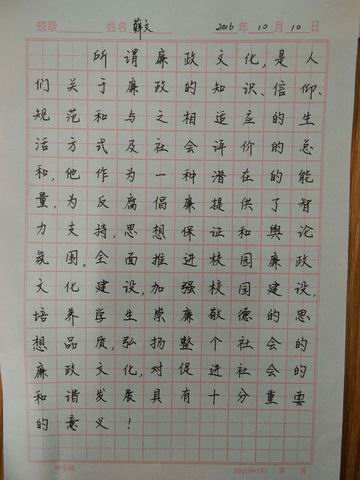 班级 姓名 薛文 2016 年 10 月 10 日
所谓廉政文化,是人
们关于廉政的知识、信仰、
规范和与之相适应的生
活方式及社会评价的总
和,他作为一种潜在的能
量,为反腐倡廉提供了智
力支持,思想保证和舆论
氛围,全面推进校园廉政
文化建设,加强校园建设,
培养学生崇廉敬德的思
想品质,弘扬整个社会的
廉政文化,对促进社会的
和谐发展具有十分重要
的意义!